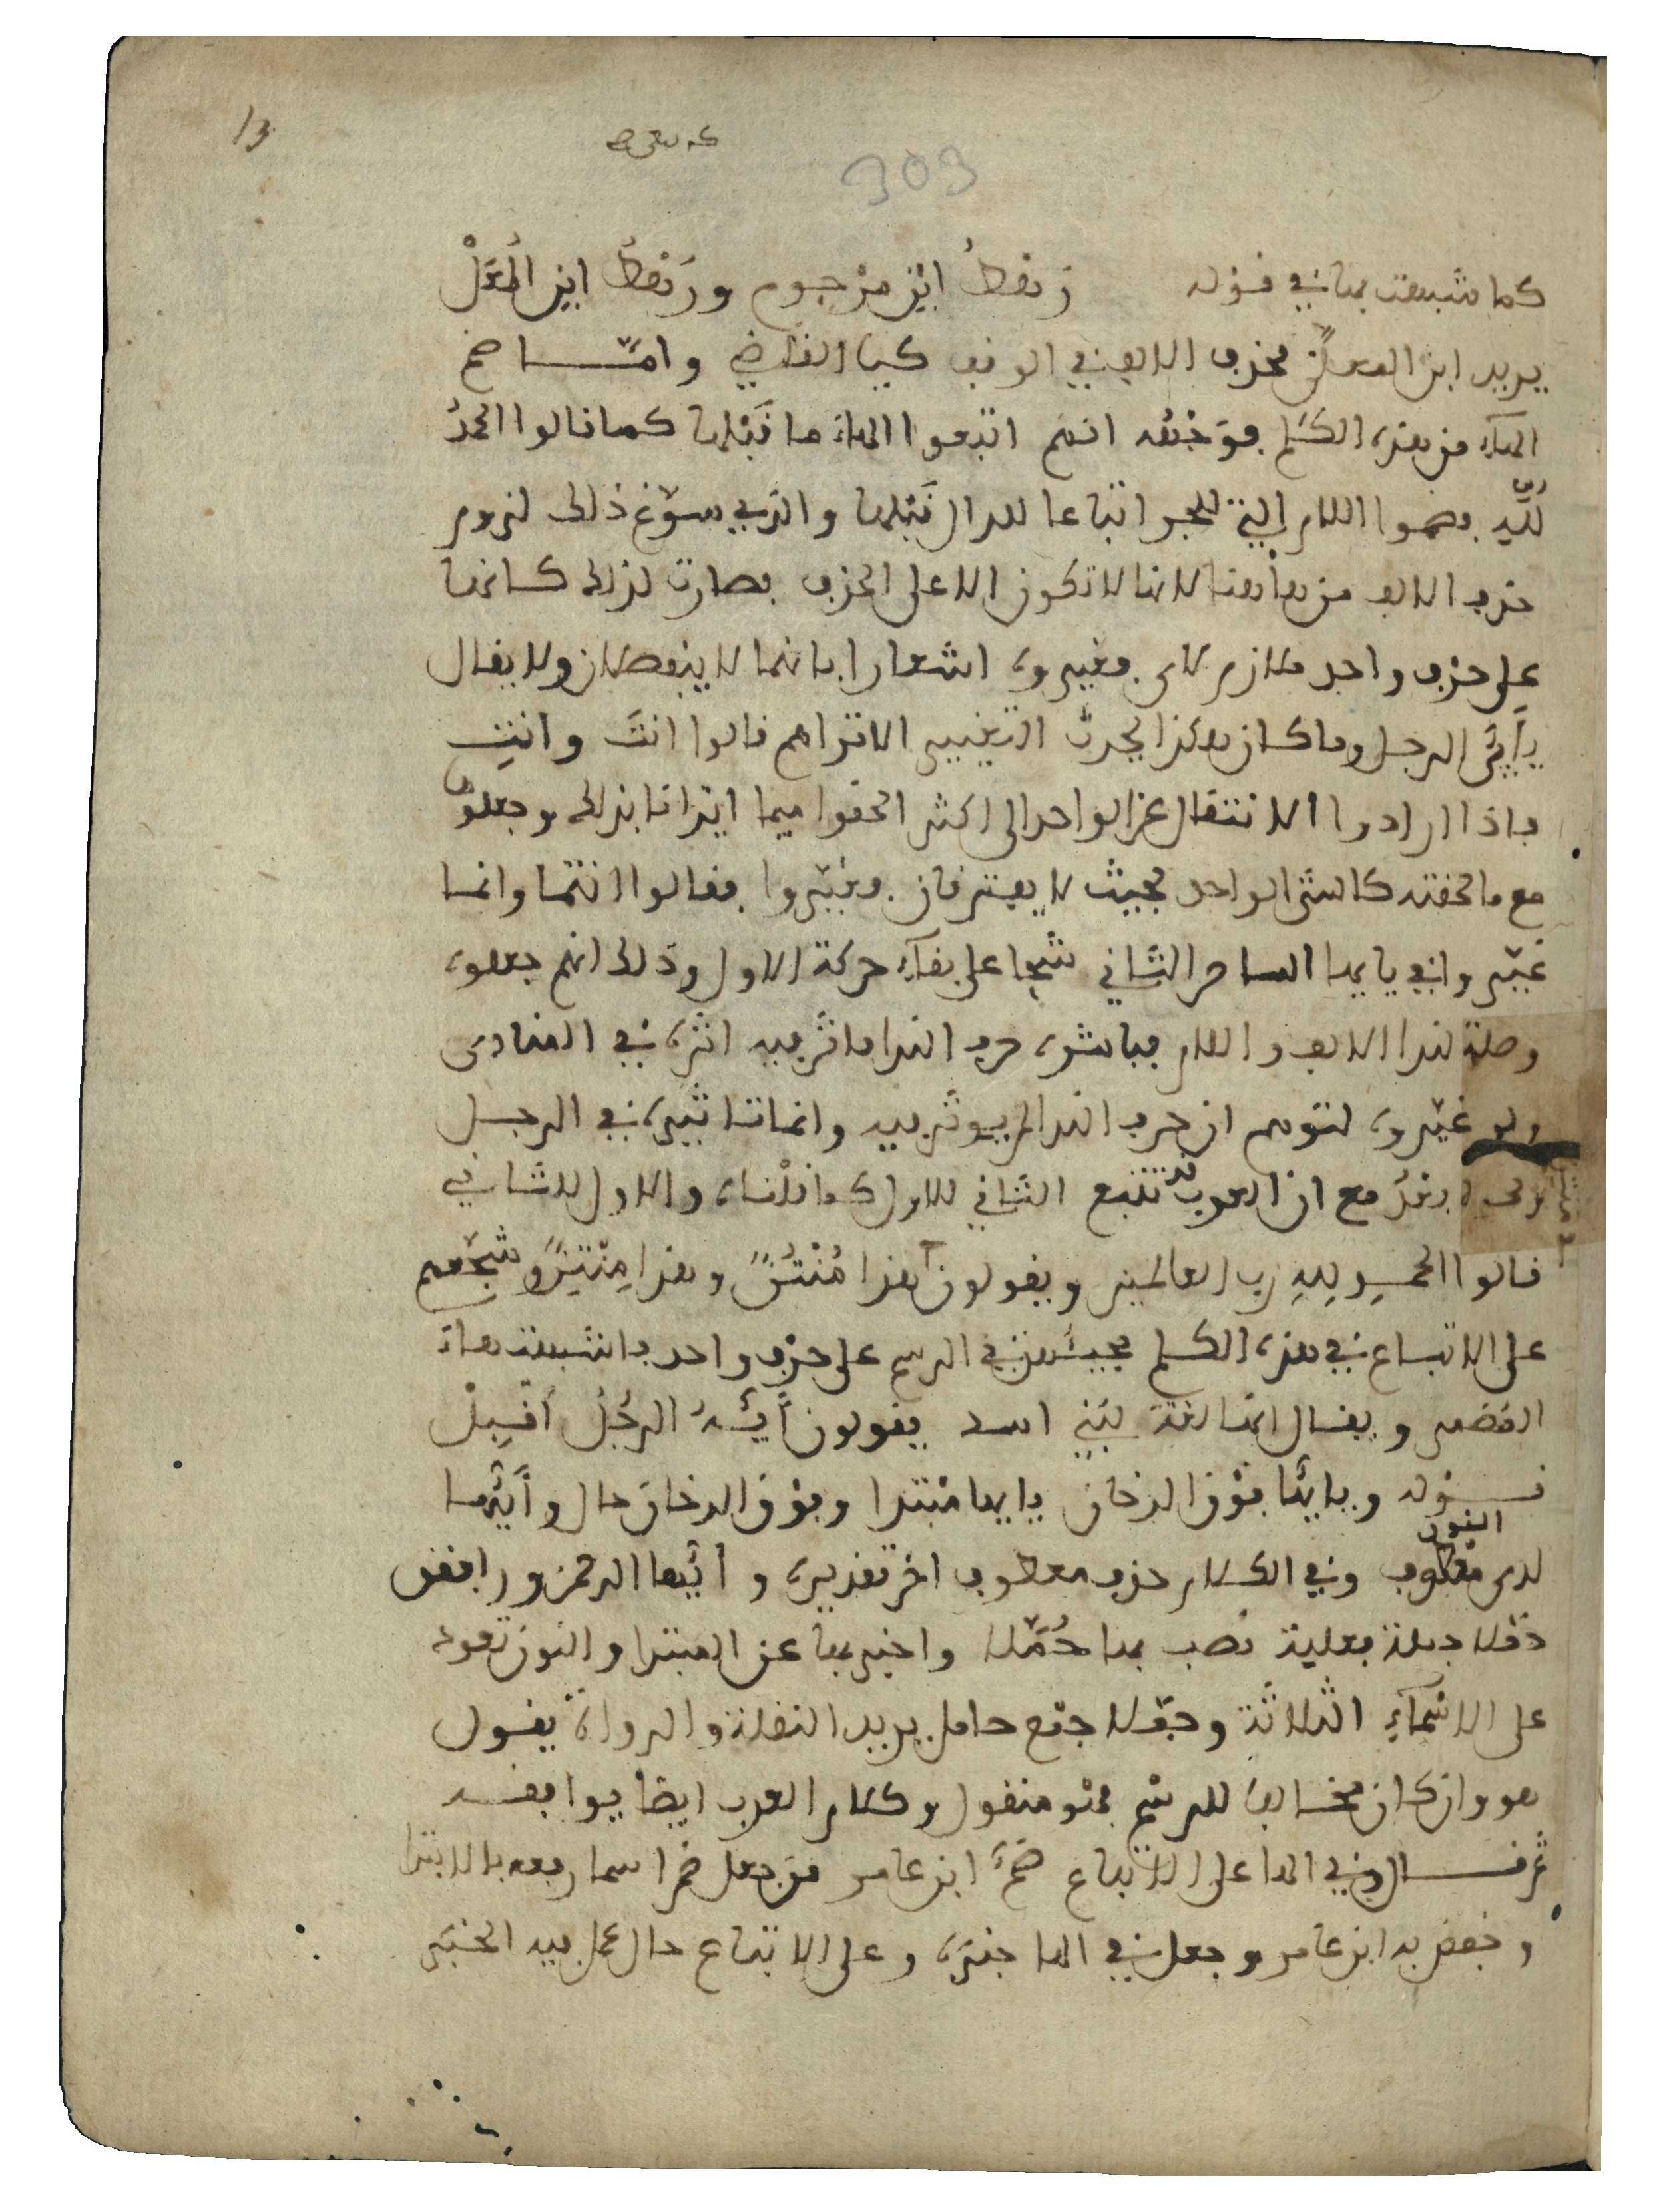 13
303
كما شبهت بها في قوله رهطُ ابن مرجوم ورهطُ ابن المُعَلْ
يريد ابن المعلى بحذف الالف في الوقف كيا القاضي وامّا ضم
الهاء من هذه الكلم فوجهه انهم اتبعوا الهاء ما قبلها كما قالوا الحمدُ
لُلّه فضموا اللام التي للجر اتباعا للدال قبلها والذي سوّغ ذلك لزوم
حذف الالف من هاهنا لانها لا تكون الا على الحذف فصارت لذلك كانها
على حرف واحد ملازم لاي فغيروه اشعارا بانهما لا ينفصلان ولا يقال
يأيّ الرجل وما كان هكذا يجري التغيير الا تراهم قالوا انتَ وانتِ
فاذا ارادوا الانتقال عن الواحد الى اكثر الحقوا ميما ايذانا بذلك وجعلوها
مع ما لحقته كالشي الواحد بحيث لا يفترقان فغيّروا فقالوا انتما وانما
غيّروا في يايها الساحر الثاني شحا على بقاء حركة الاول وذلك انهم جعلوه
وصلة لندا الالف واللام فباشره حرف الندا فاثر فيه اثره في المنادى
ولو غيّروه لتوهم ان حرف الندا لم يوثر فيه وانما تاثيره في الرجل
مع ان العرب قد تتبع الثاني للاول كما قلناه والاول للثاني
قالوا الحمدِ لِلهِ رب العالمين ويقولون هذا مُنْتُنٌ وهذا مِنْتِنٌ وشجعهم
على الاتباع في هذه الكلم مجيئهن في الرسم على حرف واحد فاشبهت هاء
الضمير ويقال انها لغة لبني اسد يقولون أيّهُ الرجُل أقبِلْ
قوله ويايها فوق الدخان يايها مبتدا وفوق الدخان حال وأيّها
لدى النور معطوف وفي الكلام حرف معطوف اخر تقديره وأيّها الرحمن ورافقن
حُمّلا جملة فعلية نصب بها حُمّلا واخبر بها عن المبتدا والنون تعود
على الاسماء الثلاثة وحمّلا جمع حامل يريد النقلة والرواة يقول
هو وان كان مخالفا للرسم فهو منقول وكلام العرب ايضا يوافقه
ثم قال وفي الها على الاتباع ضمّ ابن عامر من جعل ضم اسما رفعه بالابتدا
وخفض به ابن عامر وجعل في الها خبره وعلى الاتباع حال عمل فيه الخبَر